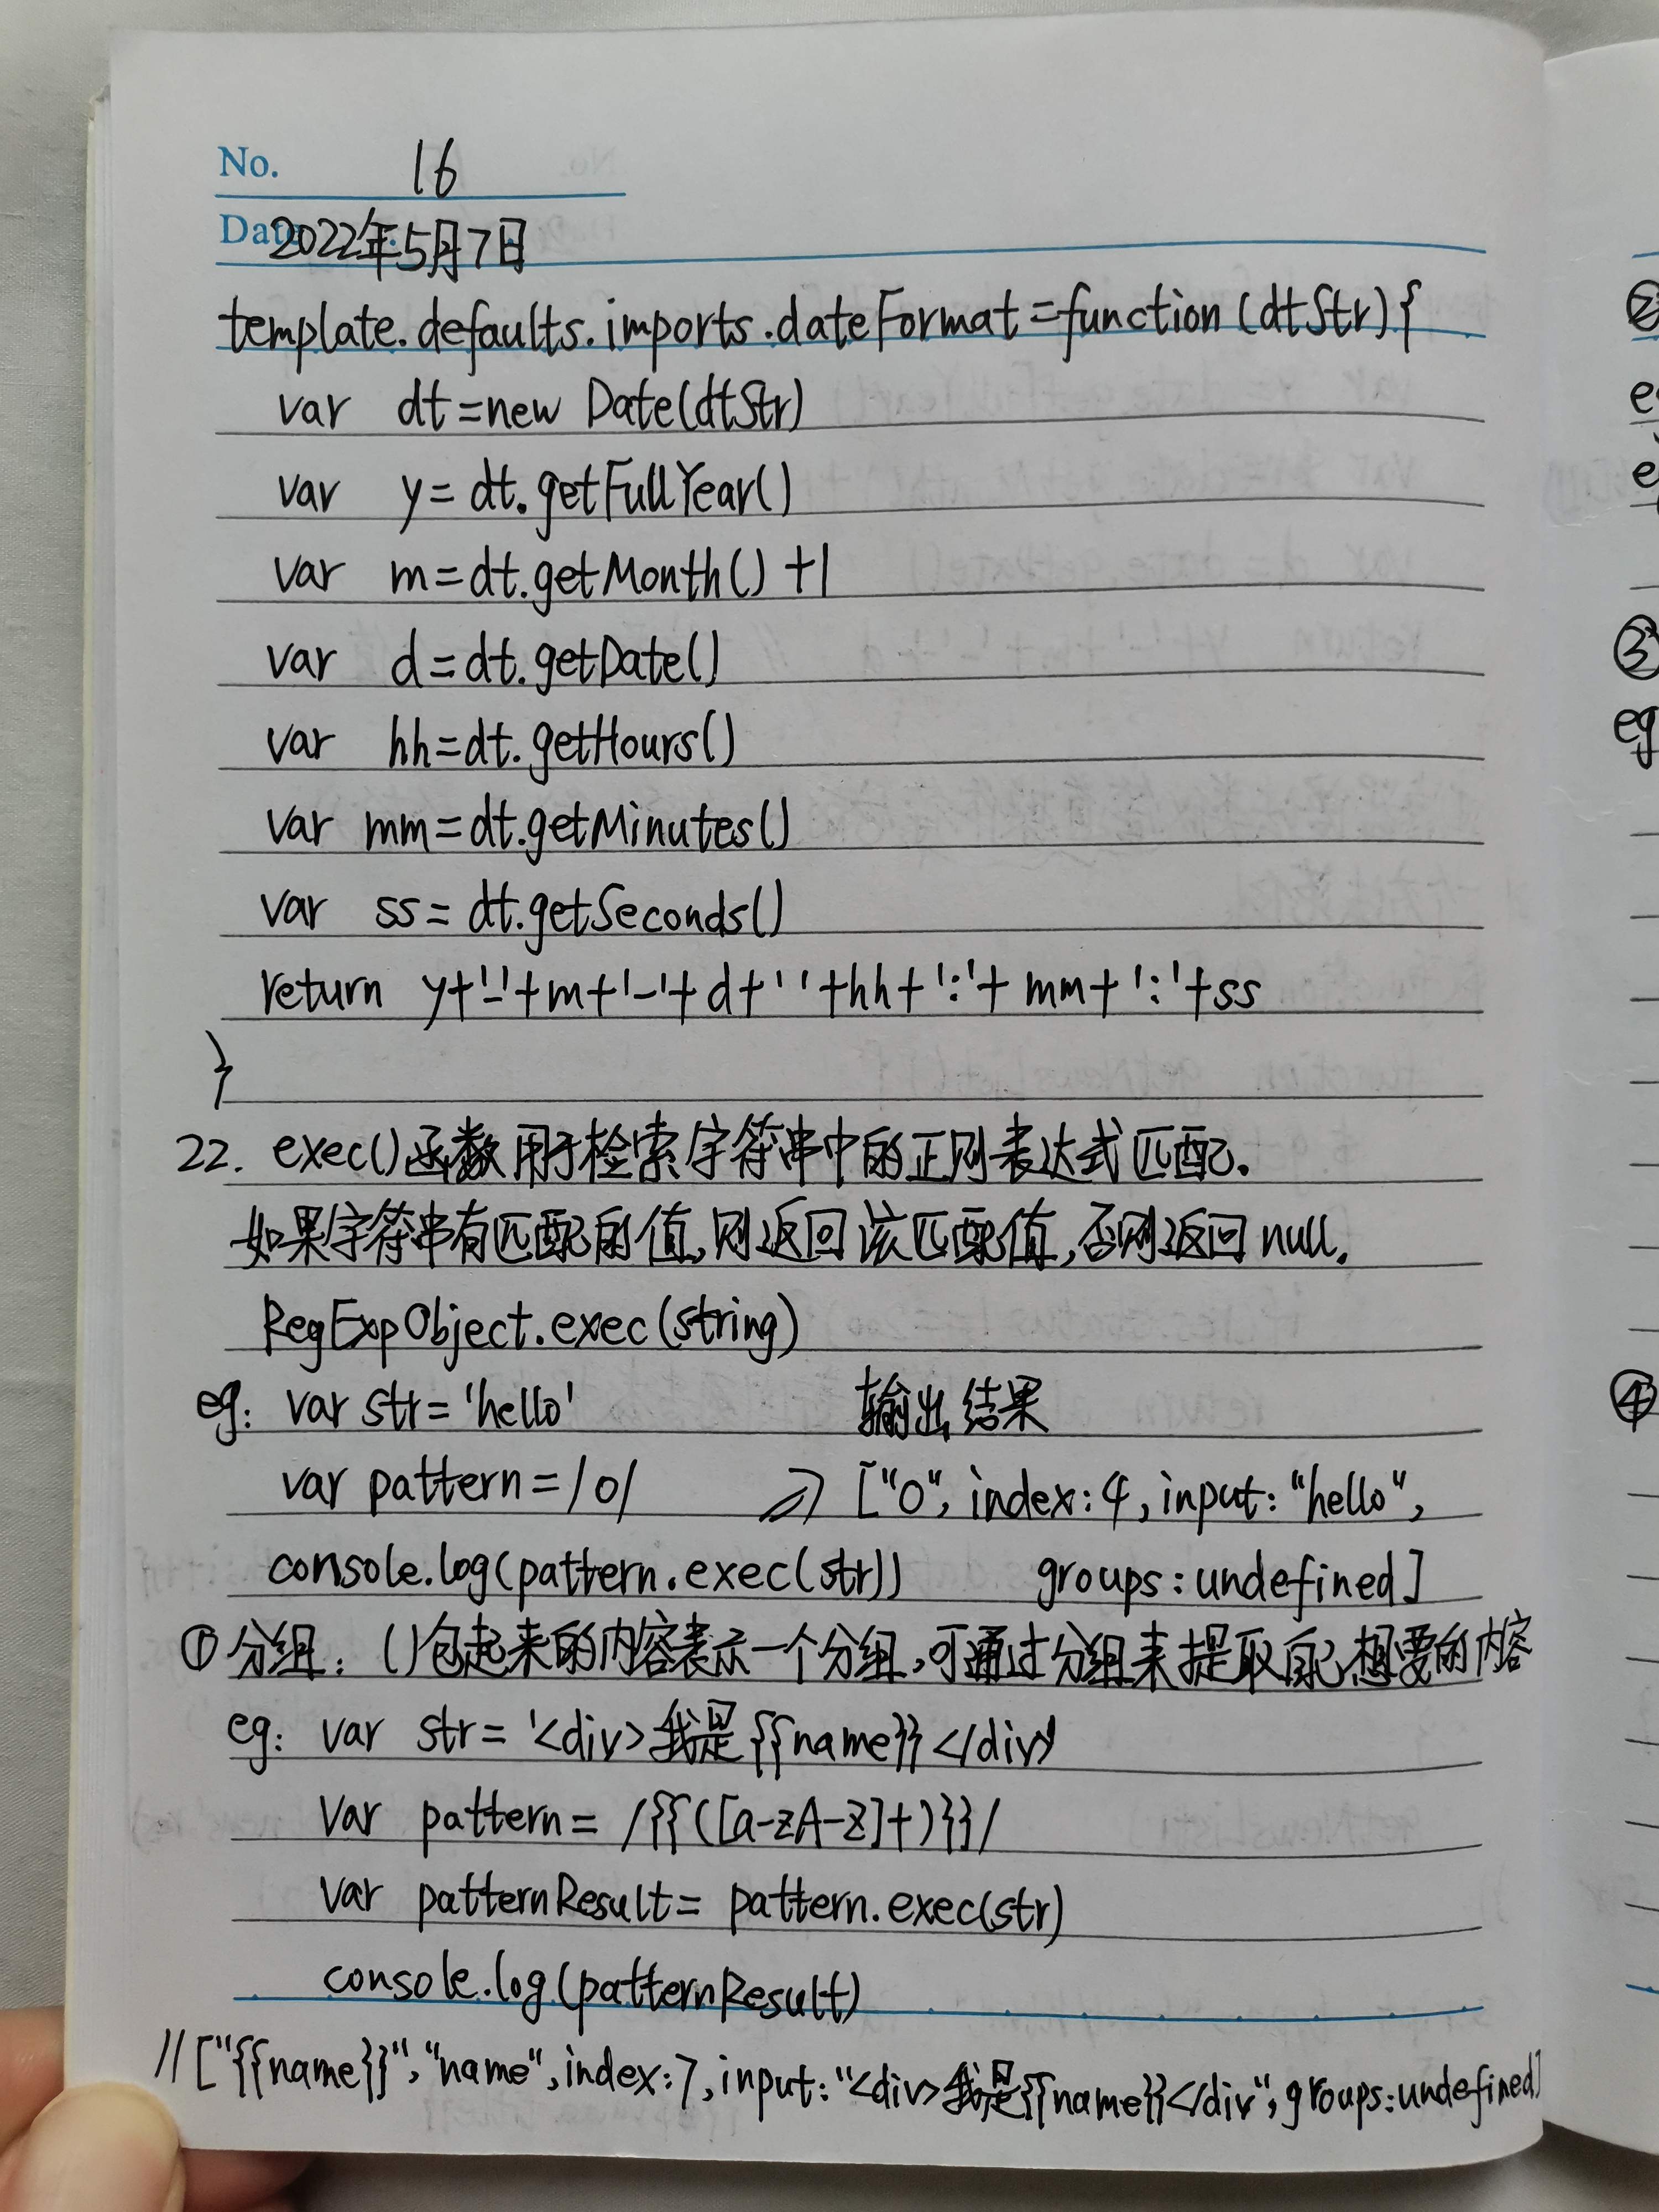 No. 16
Date 2022年5月7日
template.defaults.imports.dateFormat=function(dtStr){
var dt=new Date(dtStr)
var y=dt.getFullYear()
var m=dt.getMonth()+1
var d=dt.getDate()
var hh=dt.getHours()
var mm=dt.getMinutes()
var ss=dt.getSeconds()
return y+'-'+m+'-'+d+' '+hh+':'+mm+':'+ss
}
22. exec()函数用于检索字符串中的正则表达式匹配.
如果字符串有匹配的值,则返回该匹配值,否则返回null.
RegExpObject.exec(string)
eg: var str='hello' 输出结果
var pattern=/o/ => ["o", index:4, input:"hello",
console.log(pattern.exec(str)) groups:undefined]
① 分组: ()包起来的内容表示一个分组,可通过分组来提取自己想要的内容
eg: var str='<div>我是{{name}}</div>'
var pattern=/{{([a-zA-Z]+)}}/
var patternResult=pattern.exec(str)
console.log(patternResult)
//["{{name}}","name",index:7,input:"<div>我是{{name}}</div>",groups:undefined]
②
eg
③
eg
④